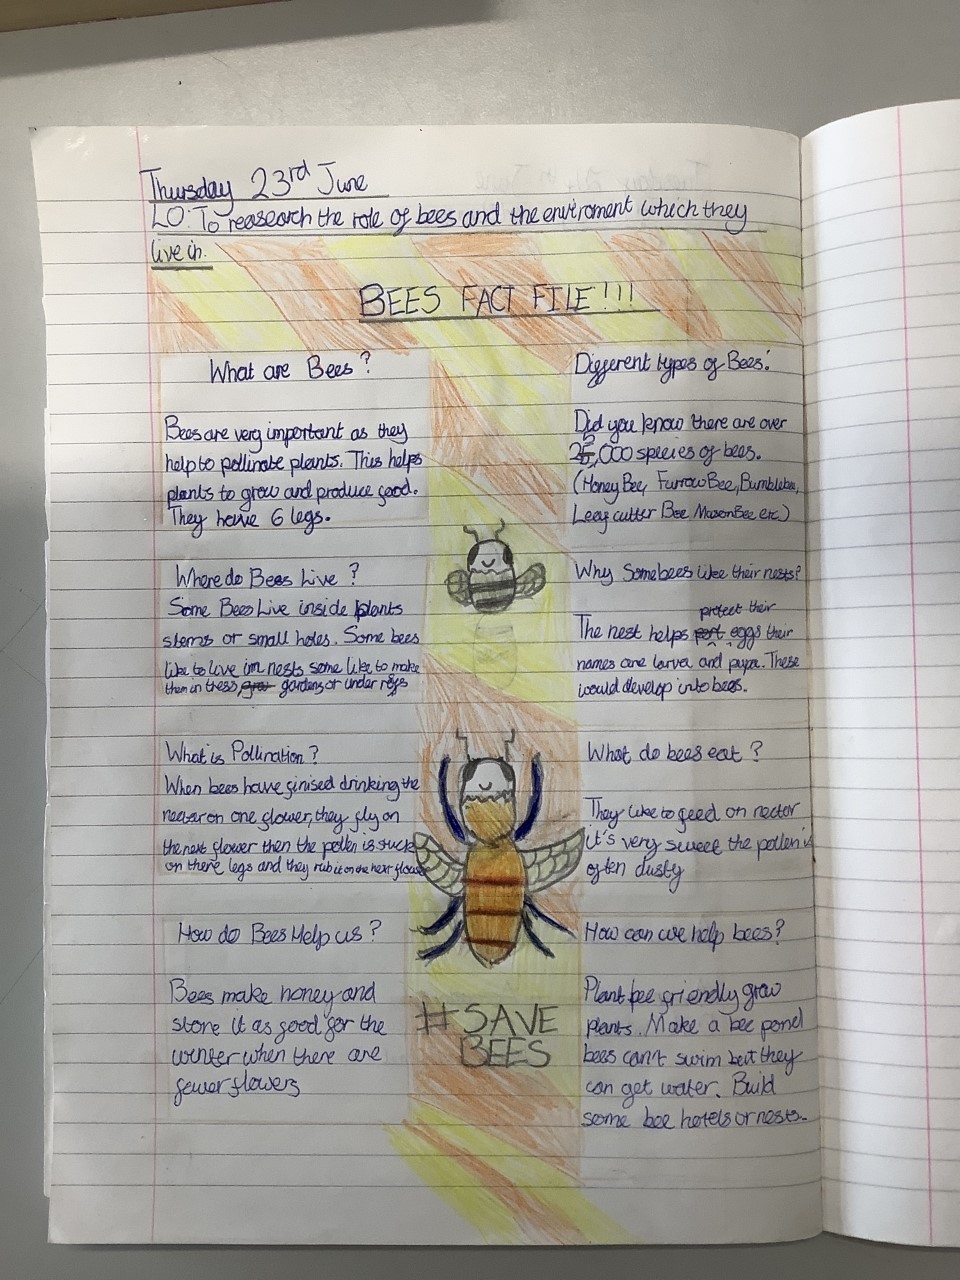 Thursday 23rd June
LO: To reasearch the role of bees and the enviroment which they
live in.
BEES FACT FILE!!!
What are Bees?
Bees are very important as they
help to pollinate plants. This helps
plants to grow and produce food.
They have 6 legs.
Where do Bees Live?
Some Bees Live inside plants
stems or small holes. Some bees
like to live in nests some like to make
them in tress gardens or under
What is Pollination?
When bees have finised drinking the
nectar on one flower, they fly on
the next flower then the pollen is stuck
on there legs and they rub it on the next flower
How do Bees Help us?
Bees make honey and
store it as food for the
winter when there are
fewer flowers
#SAVE
BEES
Different types of Bees:
Did you know there are over
25,000 species of bees.
(Honey Bee, Furrow Bee, Bumblebee,
Leaf cutter Bee Mason Bee etc)
Why Somebees like their nests?
The nest helps protect their eggs their
names are larva and pupa. These
would develop into bees.
What do bees eat?
They like to feed on nector
it's very sweet the pollen is
often dusty
How can we help bees?
Plant bee friendly grow
plants. Make a bee pond
bees can't swim but they
can get water. Build
some bee hotels or nests.